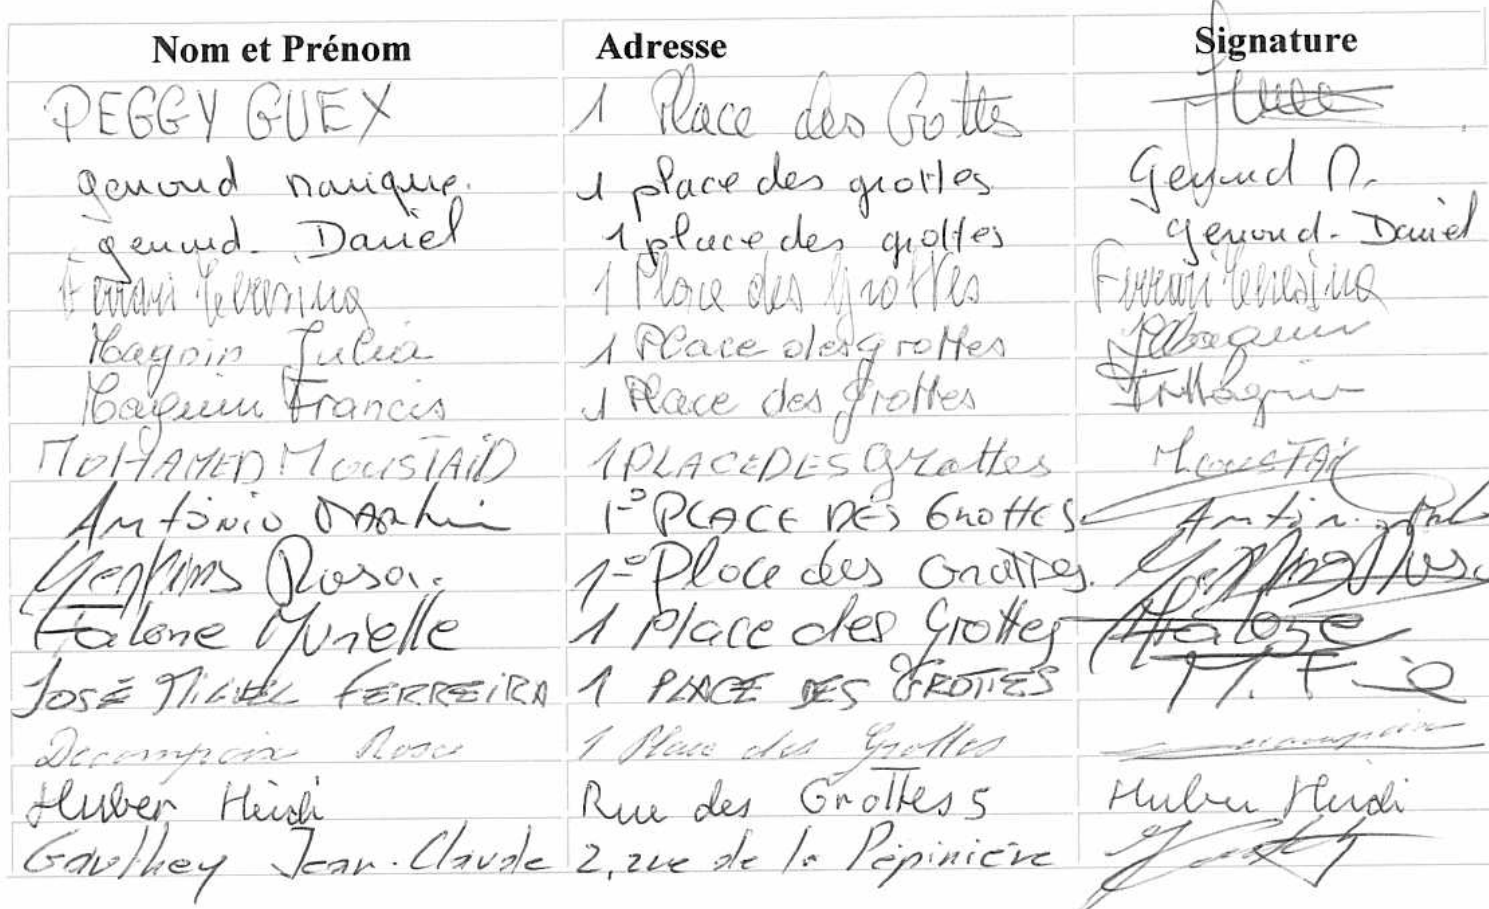 Nom et Prénom Adresse Signature
PEGGY GUEX 1 Place des Gottes
genoud 1 place des grottes Genoud M.
genoud. Daniel 1 place des grottes genoud. Daniel
Ferrari Teresina 1 Place des Grottes Ferrari Teresina
Magnin Julia 1 Place des grottes JMagnin
Magnin Francis 1 Place des Grottes FrMagnin
MOHAMED MOUSTAID 1 PLACE DES Grottes MOUSTAID
Antonio Martin 1-º PLACE DES Grottes Antonio
Rosa. 1-º Place des Grottes.
Falone Murielle 1 Place des Grottes Falone
JOSÉ MIGUEL FERREIRA 1 PLACE DES GROTTES
Decompoix Rose 1 Place des Grottes
Huber Heidi Rue des Grottes 5 Huber Heidi
Gauthey Jean-Claude 2, rue de la Pépinière